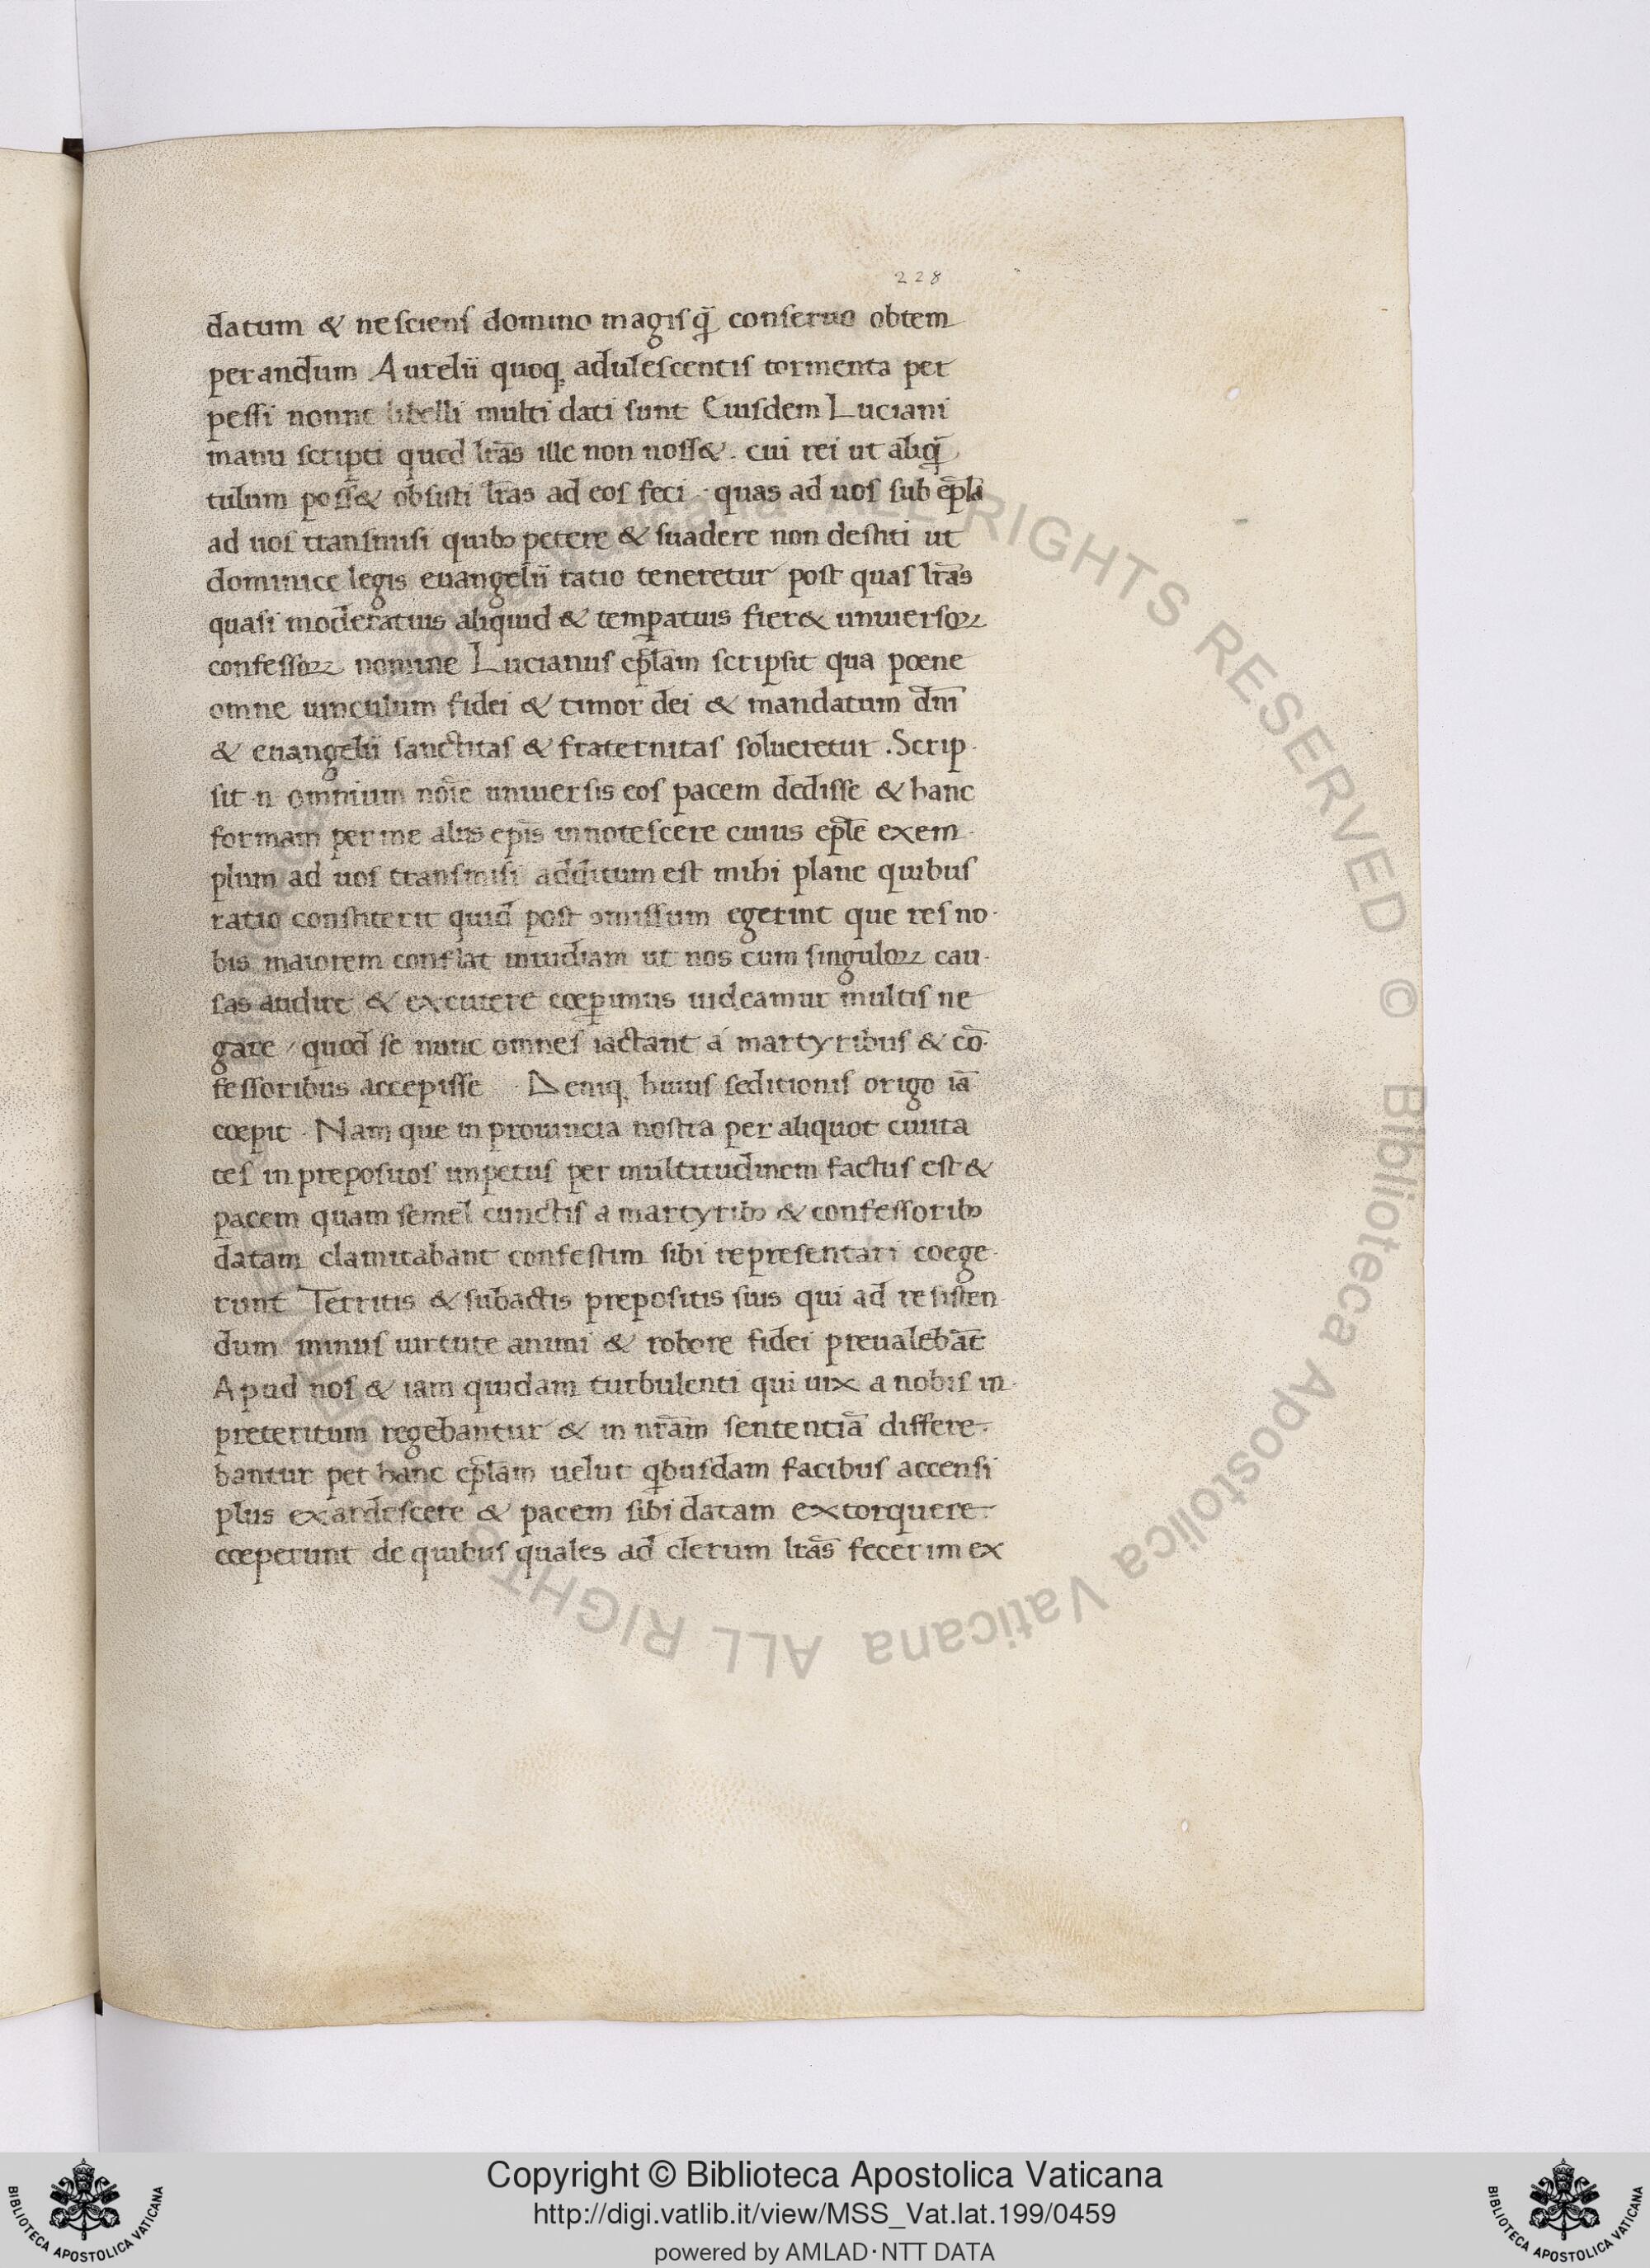 228
datum & nesciens domino magisq̃ conseruo obtem
perandum Aurelii quoq; adulescentis tormenta per
pessi nonne libelli multi dati sunt Eiusdem Luciani
manu scripti quod lr̃as ille non noss&. cui rei ut aliq̃
tulum poss& obsisti lr̃as ad eos feci · quas ad uos sub ep̃la
ad uos transmisi quibꝫ petere & suadere non destiti ut
dominice legis euangelii ratio teneretur post quas lr̃as
quasi moderatius aliquid & temꝑatius fier& uniuersoꝝ
confessoꝝ nomine Lucianus ep̃lam scripsit qua pœne
omne uinculum fidei & timor dei & mandatum dñi
& euangelii sanctitas & fraternitas solueretur . Scrip-
sit n̄ omnium nõie uniuersis eos pacem dedisse & hanc
formam per me aliis ep̃is innotescere cuius ep̃le exem-
plum ad uos transmisi additum est mihi plane quibus
ratio constiterit quid post omissum egerint que res no-
bis maiorem conflat inuidiam ut nos cum singuloꝝ cau-
sas audire & excutere cœꝑimus uideamur multis ne
gare / quod se nunc omnes iactant a martyribus & cõ-
fessoribus accepisse · Deniq; huius seditionis origo iã
cœpit · Nam que in prouincia nostra per aliquot ciuita
tes in prepositos impetus per multitudinem factus est &
pacem quam semel cunctis a martyribꝫ & confessoribꝫ
datam clamitabant confestim sibi representari coege-
runt Territis & subactis prepositis suis qui ad resisten-
dum minus uirtute animi & robore fidei preualebãt
Apud nos & iam quidam turbulenti qui uix a nobis in-
preteritum regebantur & in nr̃am sententiã differe-
bantur per hanc ep̃lam uelut qͥbusdam facibus accensi
plus exardescere & pacem sibi datam extorquere
cœperunt de quibus quales ad clerum lr̃as fecerim ex
Copyright © Biblioteca Apostolica Vaticana
http://digi.vatlib.it/view/MSS_Vat.lat.199/0459
powered by AMLAD·NTT DATA
BIBLIOTECA APOSTOLICA VATICANA
BIBLIOTECA APOSTOLICA VATICANA
ALL RIGHTS RESERVED © Biblioteca Apostolica Vaticana ALL RIGHTS